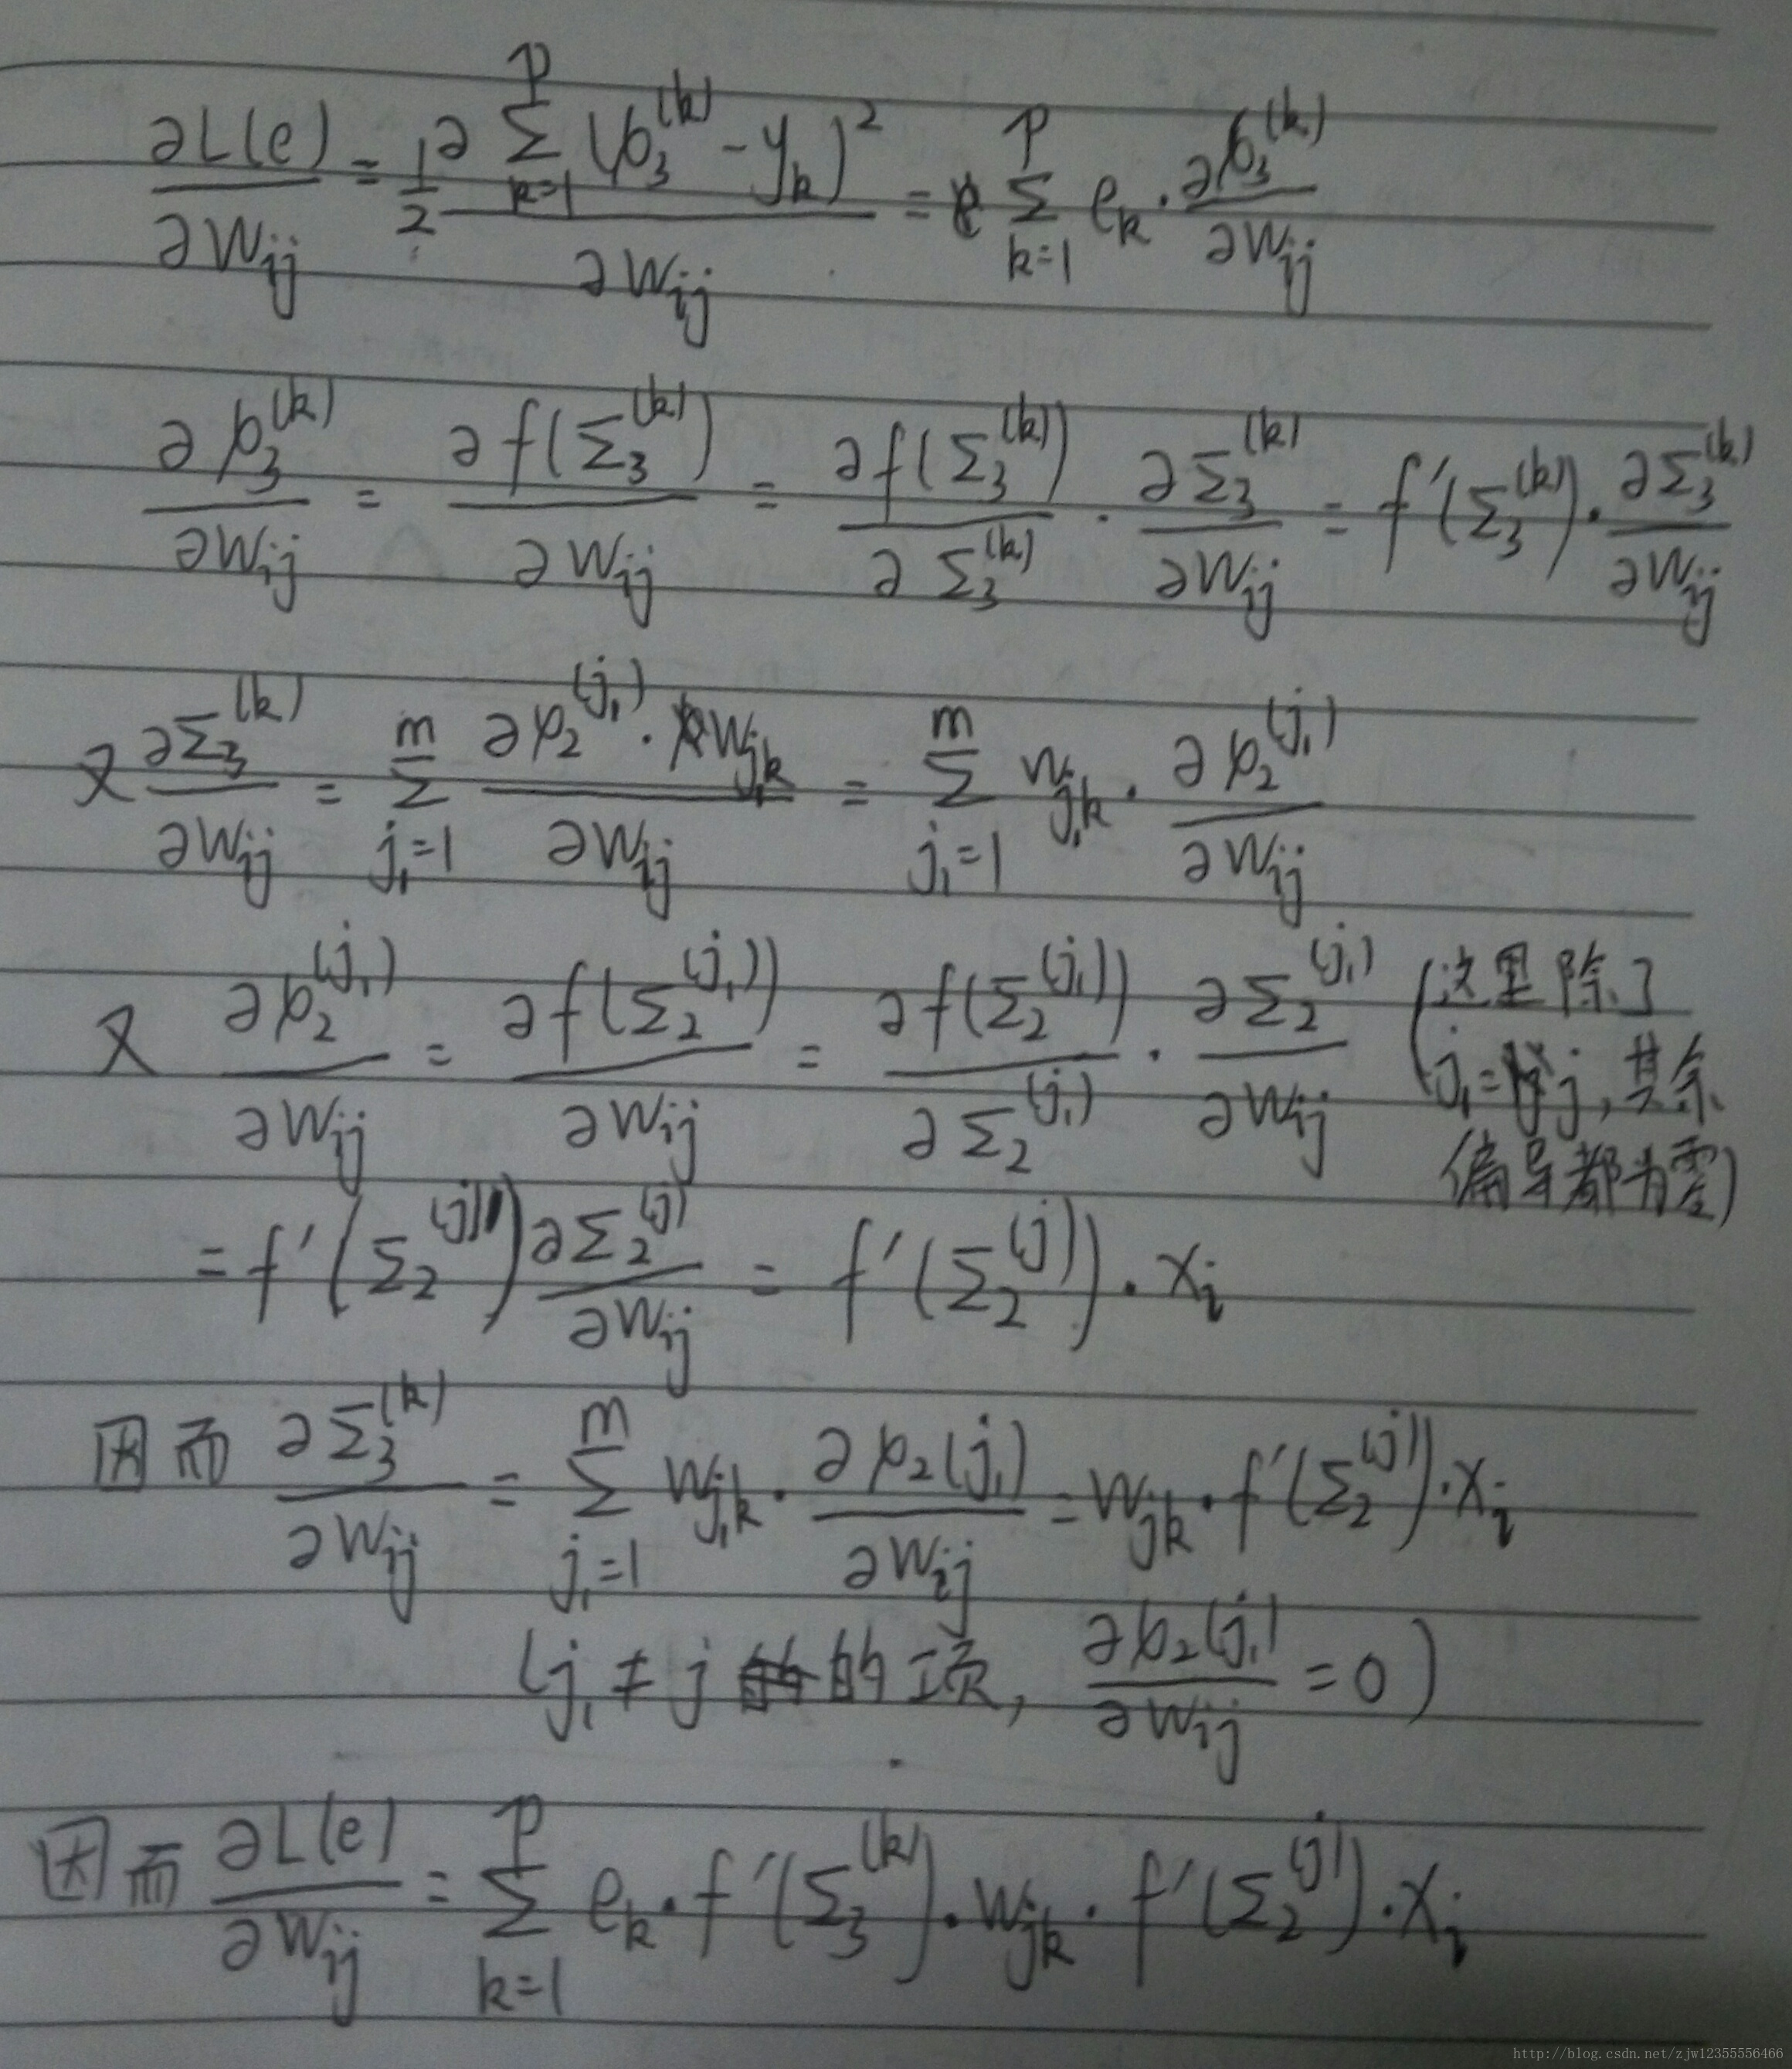 ∂L(e)/∂W_ij = 1/2 ∂ Σ_{k=1}^{p} (b_3^{(k)} - y_k)^2 / ∂W_ij = Σ_{k=1}^{p} e_k · ∂b_3^{(k)}/∂W_ij
∂b_3^{(k)}/∂W_ij = ∂f(Σ_3^{(k)})/∂W_ij = ∂f(Σ_3^{(k)})/∂Σ_3^{(k)} · ∂Σ_3^{(k)}/∂W_ij = f'(Σ_3^{(k)}) · ∂Σ_3^{(k)}/∂W_ij
又 ∂Σ_3^{(k)}/∂W_ij = Σ_{j_1=1}^{m} ∂b_2^{(j_1)} · W_{j_1k}/∂W_ij = Σ_{j_1=1}^{m} W_{j_1k} · ∂b_2^{(j_1)}/∂W_ij
又 ∂b_2^{(j_1)}/∂W_ij = ∂f(Σ_2^{(j_1)})/∂W_ij = ∂f(Σ_2^{(j_1)})/∂Σ_2^{(j_1)} · ∂Σ_2^{(j_1)}/∂W_ij (这里除了
j_1=j,其余
偏导都为零)
= f'(Σ_2^{(j)}) ∂Σ_2^{(j)}/∂W_ij = f'(Σ_2^{(j)}) · x_i
因而 ∂Σ_3^{(k)}/∂W_ij = Σ_{j_1=1}^{m} W_{j_1k} · ∂b_2(j_1)/∂W_ij = W_jk · f'(Σ_2^{(j)}) · x_i
(j_1 ≠ j 的项, ∂b_2(j_1)/∂W_ij = 0)
因而 ∂L(e)/∂W_ij = Σ_{k=1}^{p} e_k · f'(Σ_3^{(k)}) · W_jk · f'(Σ_2^{(j)}) · x_i
http://blog.csdn.net/zjw12355556466